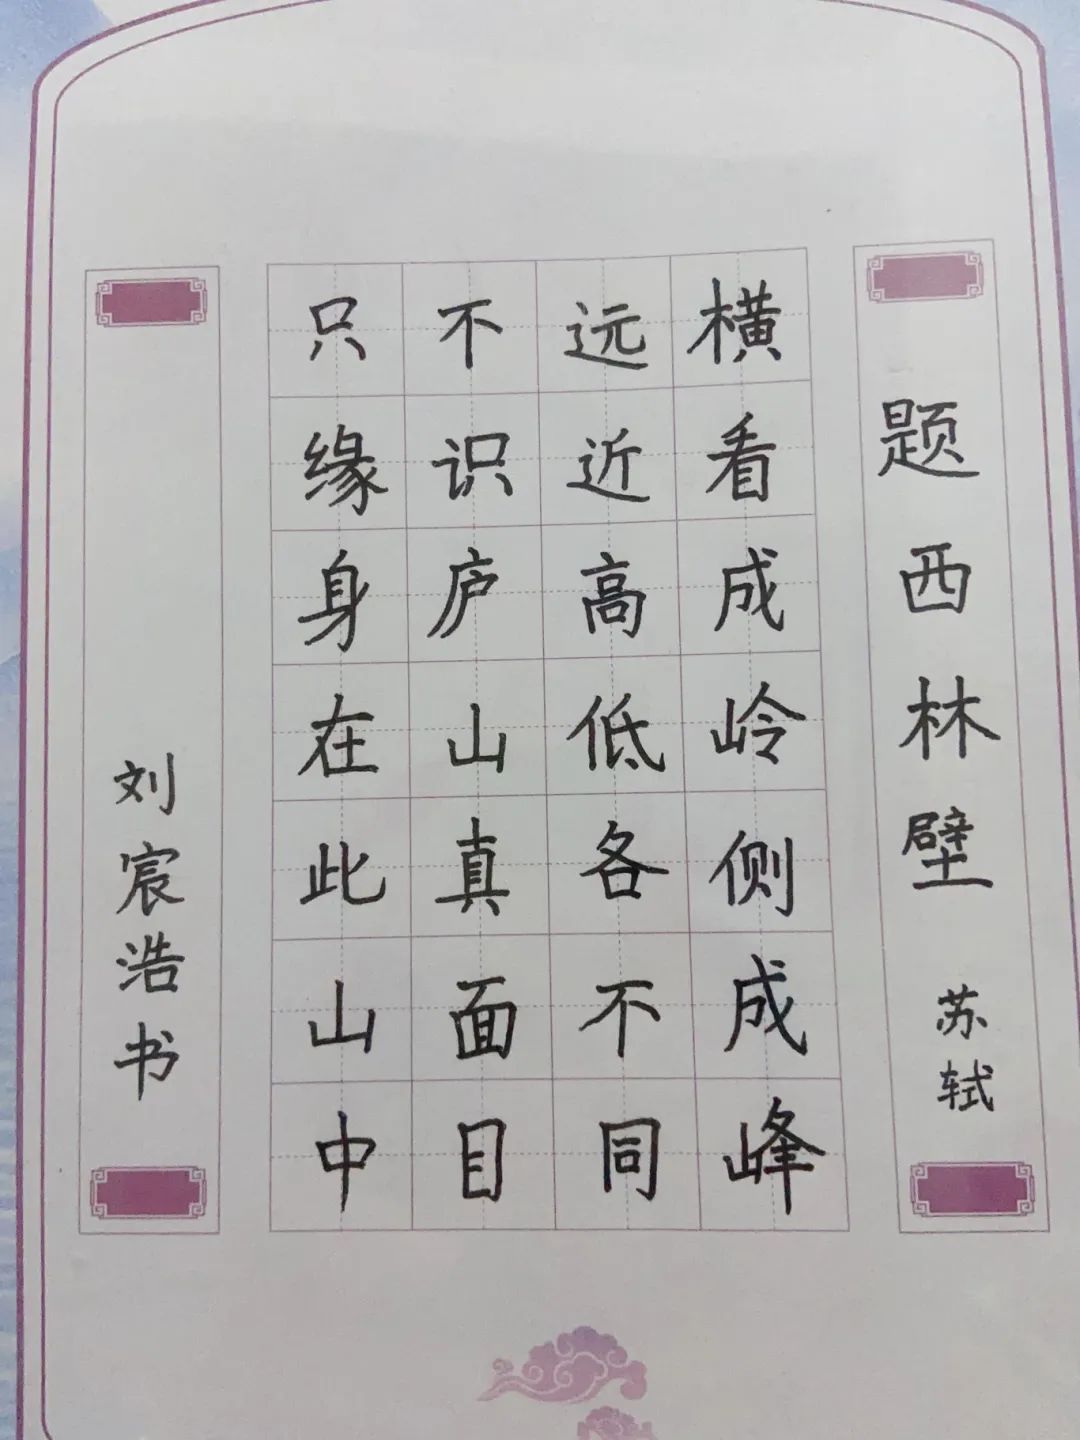 题西林壁 苏轼
横看成岭侧成峰
远近高低各不同
不识庐山真面目
只缘身在此山中
刘宸浩书